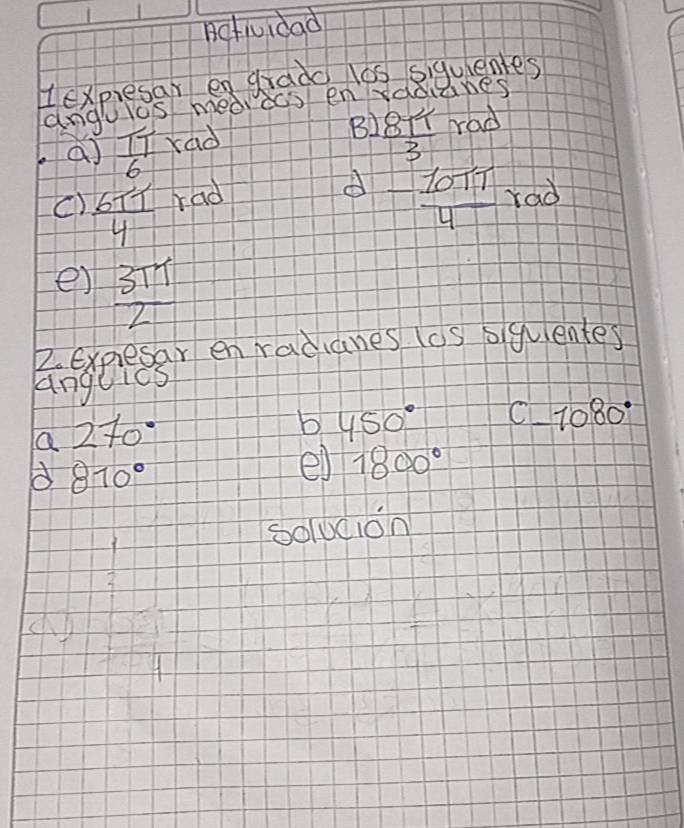 Actividad
1 Expresar en grado los siguientes
angulos medidas en radianes
a) π/6 rad B) 8π/3 rad
c) 6π/4 rad d -10π/4 rad
e) 3π/2
2. Expresar en radianes los siguientes
angulos
a 270° b 450° C-1080°
d 810° e) 1800°
solución